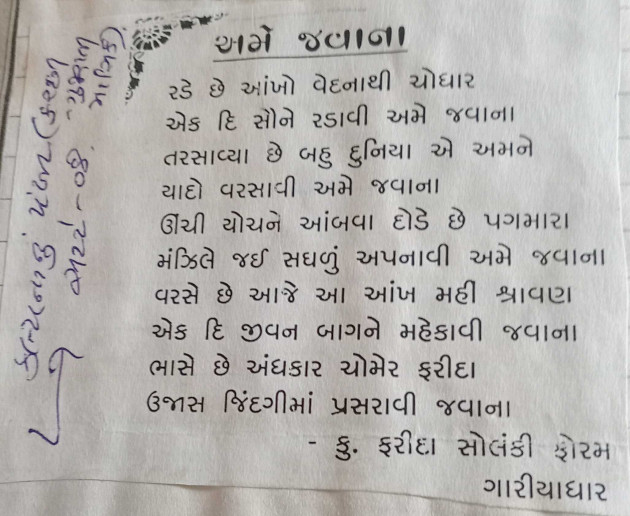 અમે જવાના
રડે છે આંખો વેદનાથી ચોધાર
એક દિ સૌને રડાવી અમે જવાના
તરસાવ્યા છે બહુ દુનિયા એ અમને
યાદો વરસાવી અમે જવાના
ઊંચી ચોચને આંબવા દોડે છે પગમારા
મંઝિલે જઈ સઘળું અપનાવી અમે જવાના
વરસે છે આજે આ આંખ મહી શ્રાવણ
એક દિ જીવન બાગને મહેકાવી જવાના
ભાસે છે અંધકાર ચોમેર ફરીદા
ઉજાસ જિંદગીમાં પ્રસરાવી જવાના
- કુ. ફરીદા સોલંકી ફોરમ
ગારીયાધાર